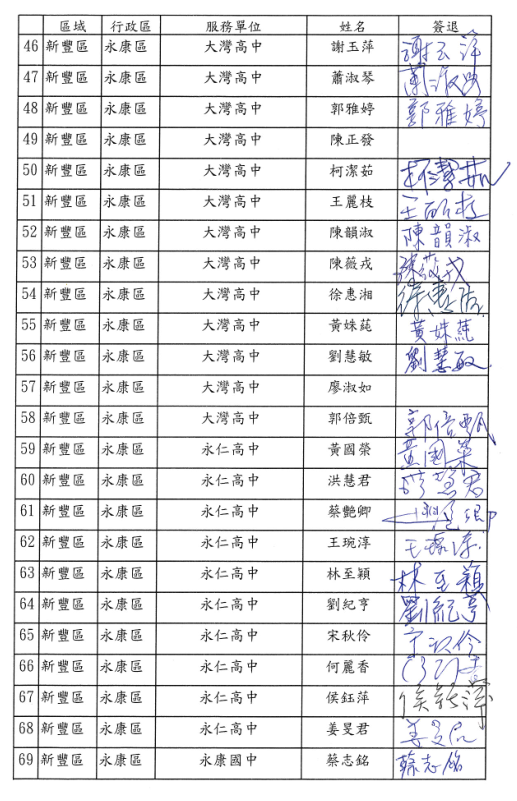 區域 行政區 服務單位 姓名 簽退
46 新豐區 永康區 大灣高中 謝玉萍 謝玉萍
47 新豐區 永康區 大灣高中 蕭淑琴
48 新豐區 永康區 大灣高中 郭雅婷 郭雅婷
49 新豐區 永康區 大灣高中 陳正發
50 新豐區 永康區 大灣高中 柯潔茹 柯潔茹
51 新豐區 永康區 大灣高中 王麗枝 王麗枝
52 新豐區 永康區 大灣高中 陳韻淑 陳韻淑
53 新豐區 永康區 大灣高中 陳薇戎 陳薇戎
54 新豐區 永康區 大灣高中 徐惠湘 徐惠湘
55 新豐區 永康區 大灣高中 黃姝蓏 黃姝蓏
56 新豐區 永康區 大灣高中 劉慧敏 劉慧敏
57 新豐區 永康區 大灣高中 廖淑如
58 新豐區 永康區 大灣高中 郭倍甄 郭倍甄
59 新豐區 永康區 永仁高中 黃國榮 黃國榮
60 新豐區 永康區 永仁高中 洪慧君 洪慧君
61 新豐區 永康區 永仁高中 蔡艷卿
62 新豐區 永康區 永仁高中 王琬淳 王琬淳
63 新豐區 永康區 永仁高中 林至穎 林至穎
64 新豐區 永康區 永仁高中 劉紀亨 劉紀亨
65 新豐區 永康區 永仁高中 宋秋伶 宋秋伶
66 新豐區 永康區 永仁高中 何麗香
67 新豐區 永康區 永仁高中 侯鈺萍 侯鈺萍
68 新豐區 永康區 永仁高中 姜旻君 姜旻君
69 新豐區 永康區 永康國中 蔡志銘 蔡志銘